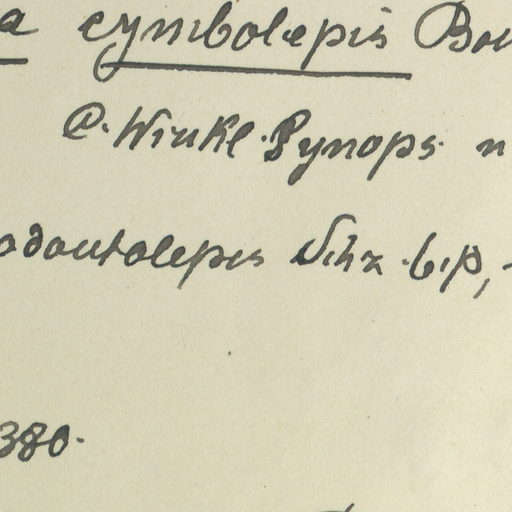 a cymbolepis Bo
C. Winkl. Synops. n
odontolepis Schz. bip,
380.